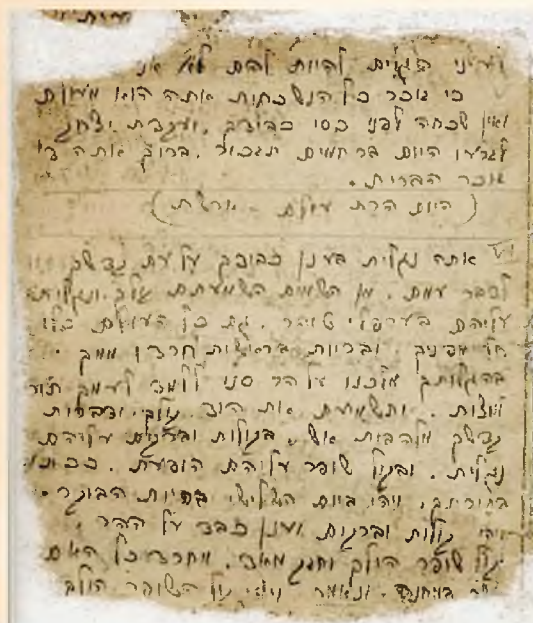 לעיני הגוים להיות להם אני
כי זוכר כל הנשכחות אתה הוא מעולם
ואין שכחה לפני כסא כבודך. ועקדת יצחק
לזרעו היום ברחמים תזכור. ברוך אתה ה'
זוכר הברית.
(היום הרת עולם - ארשת)
אתה נגלית בענן כבודך על עם קדשך
לדבר עמם. מן השמים השמעתם קולך ונגלית
עליהם בערפלי טוהר. גם כל העולם כולו
חל מפניך. ובריות בראשית חרדו ממך
בהגלותך מלכנו על הר סני ללמד לעמך תורה
ומצות. ותשמיעם את הוד קולך ודברות
קדשך מלהבות אש. בקולות וברקים עליהם
נגלית. ובקול שופר עליהם הופעת. ככתוב
בתורתך. ויהי ביום השלישי בהיות הבוקר.
ויהי קולות וברקים וענן כבד על ההר
וקול שופר הולך וחזק מאד. ויחרד כל העם
אשר במחנה. ונאמר ויהי קול השופר הולך